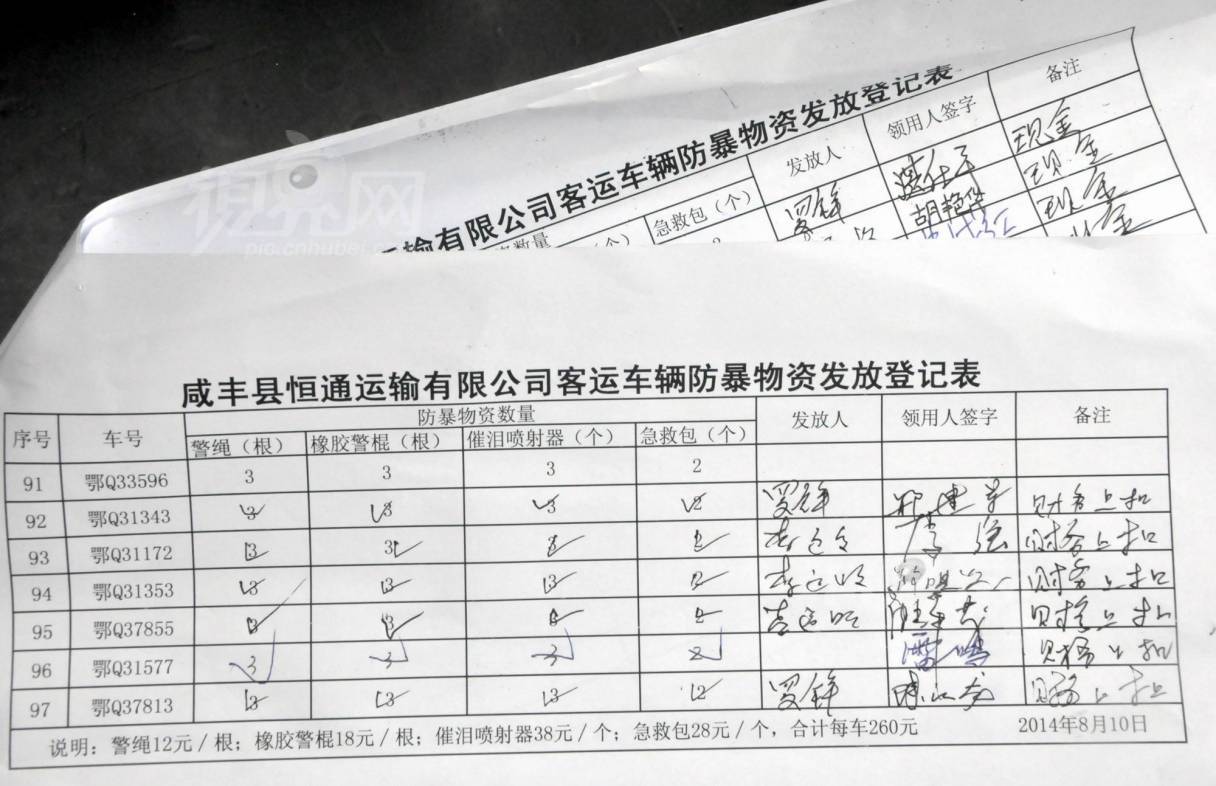 視界网
pic.cnhubei.com
输有限公司客运车辆防暴物资发放登记表
数量 急救包（个） 发放人 领用人签字 备注
罗锋 现金
胡艳华 现金
现金
咸丰县恒通运输有限公司客运车辆防暴物资发放登记表
序号 车号 防暴物资数量 发放人 领用人签字 备注
警绳（根） 橡胶警棍（根） 催泪喷射器（个） 急救包（个）
91 鄂Q33596 3 3 3 2
92 鄂Q31343 3 3 3 2 罗锋 财务上扣
93 鄂Q31172 3 3 2 李强 财务上扣
94 鄂Q31353 3 3 3 2 财务上扣
95 鄂Q37855 3 3 财务上扣
96 鄂Q31577 3 3 3 2 雷鸣 财务上扣
97 鄂Q37813 3 3 3 2 罗锋 财务上扣
说明：警绳12元／根；橡胶警棍18元／根；催泪喷射器38元／个；急救包28元／个，合计每车260元 2014年8月10日